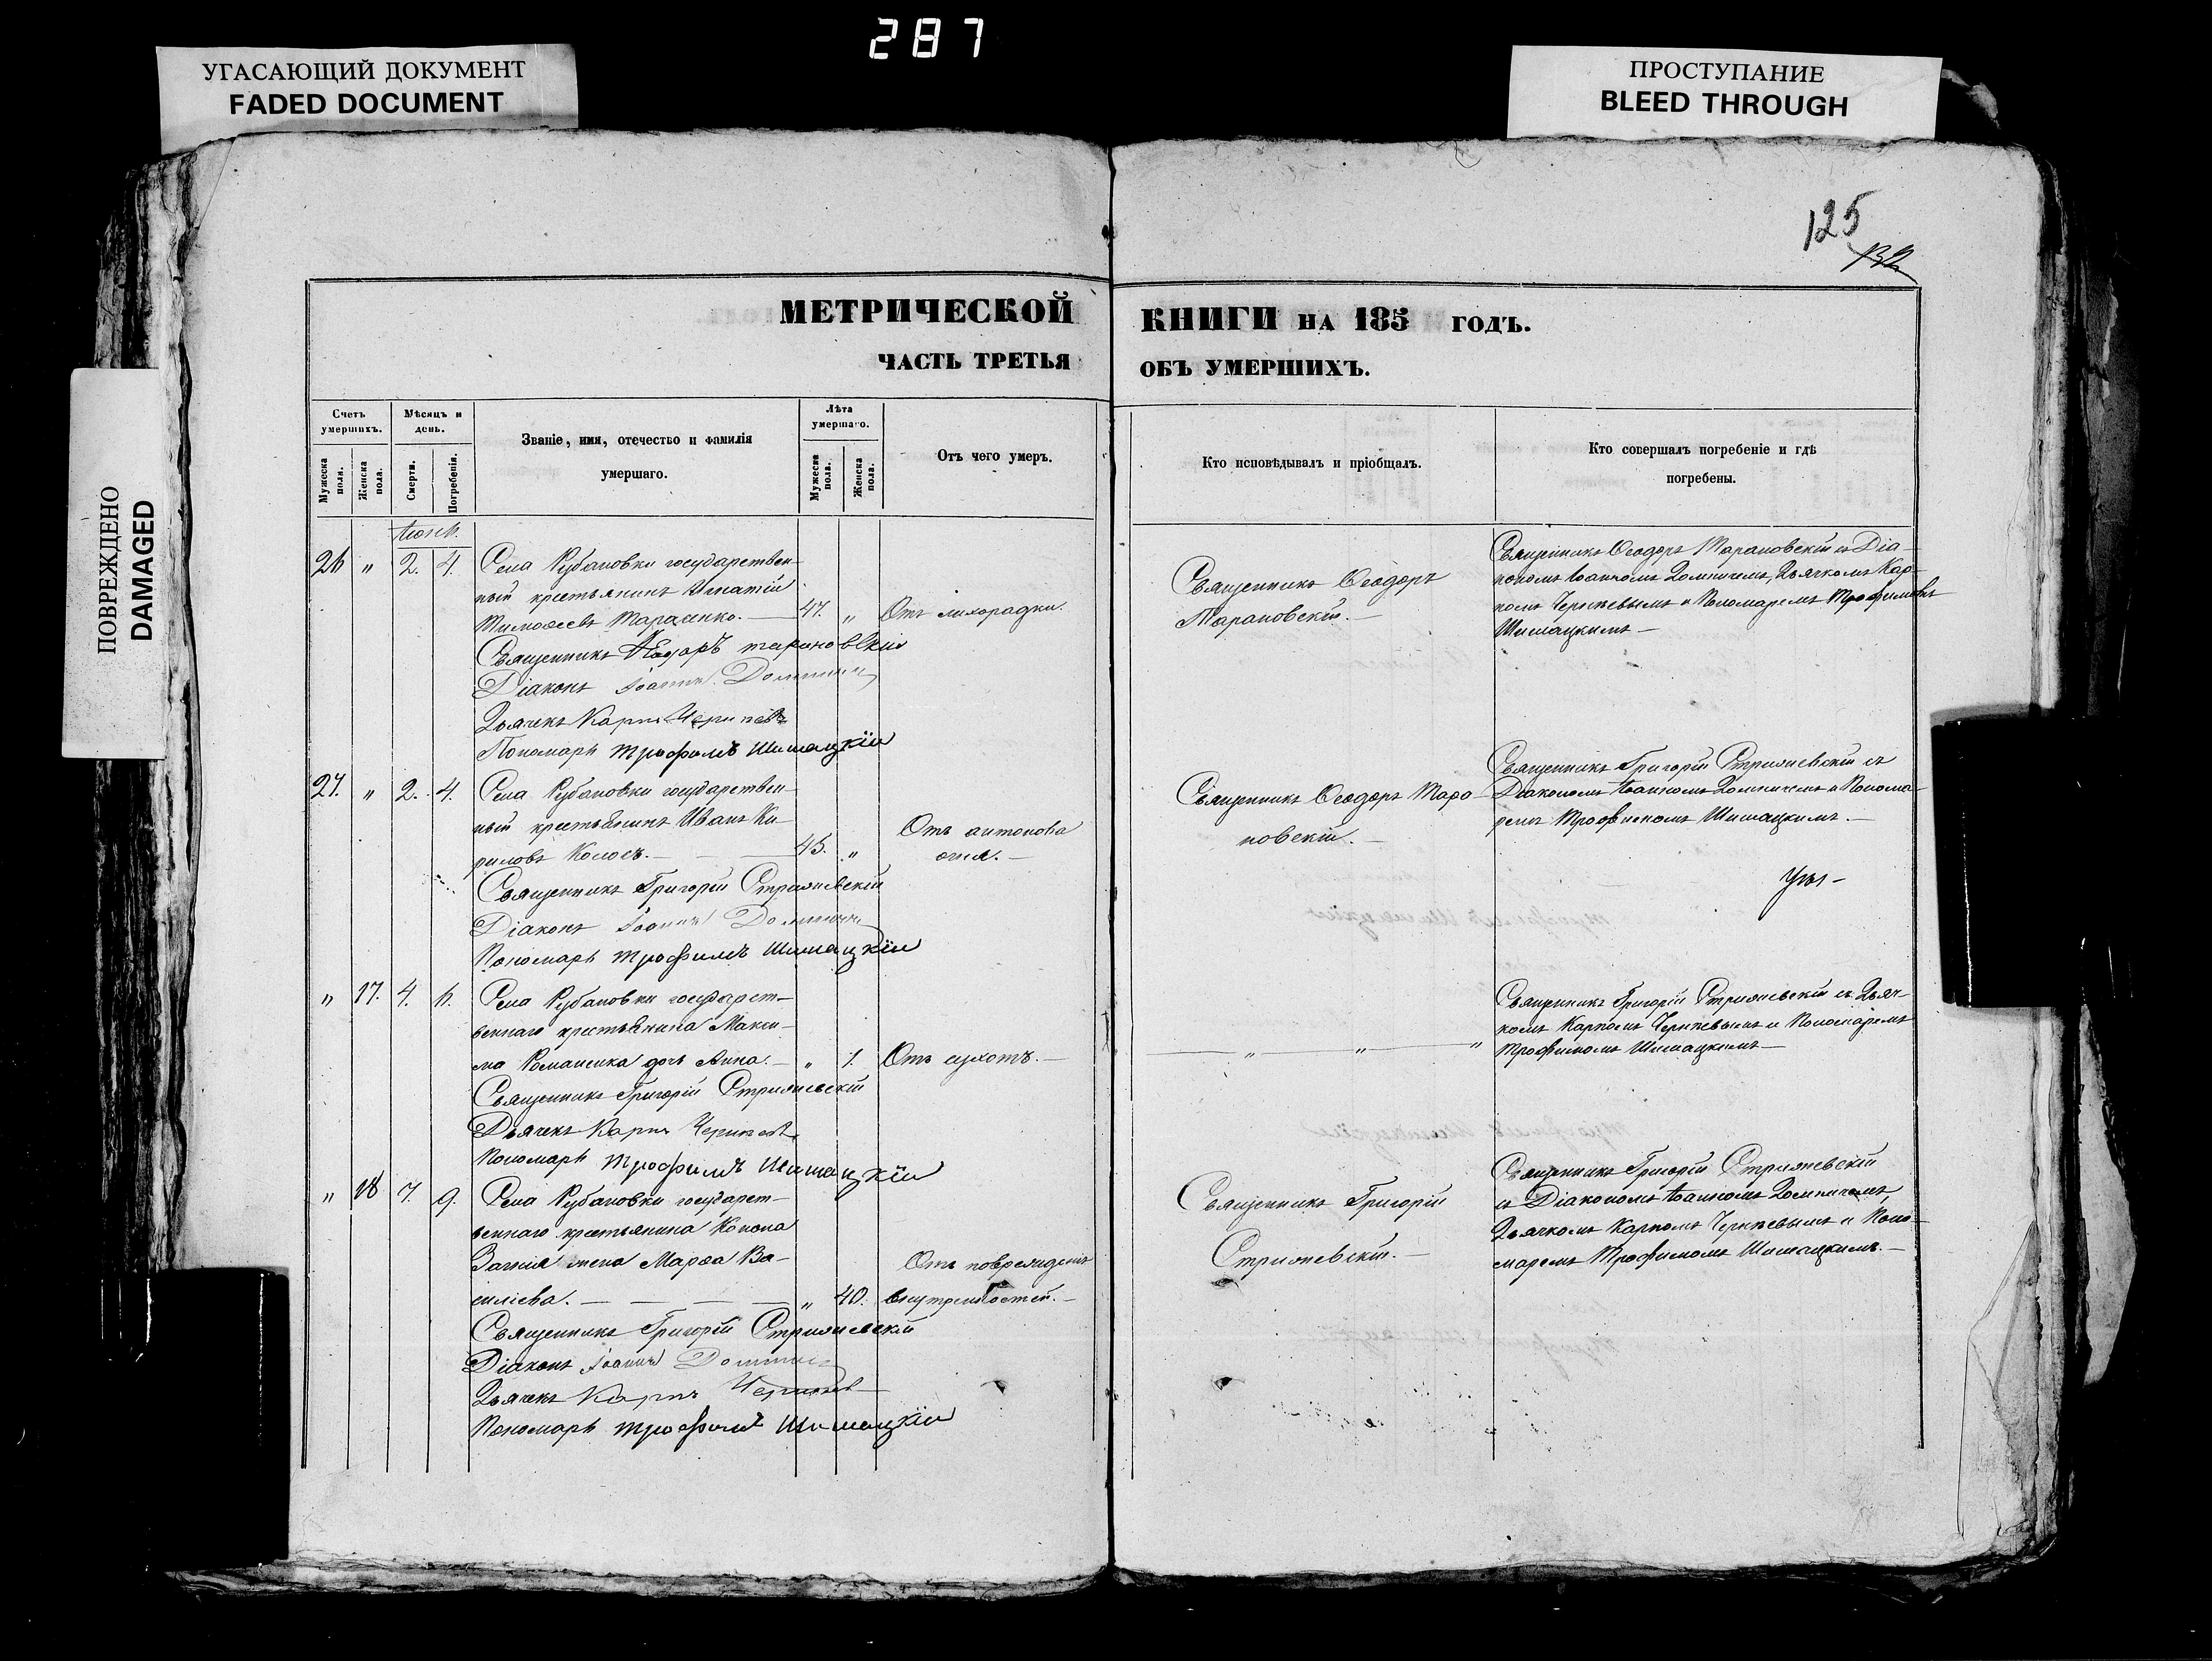 287
УГАСАЮЩИЙ ДОКУМЕНТ
FADED DOCUMENT
ПРОСТУПАНИЕ
BLEED THROUGH
ПОВРЕЖДЕНО
DAMAGED
125
132
МЕТРИЧЕСКОЙ КНИГИ НА 185 ГОДЪ.
ЧАСТЬ ТРЕТЬЯ ОБЪ УМЕРШИХЪ.
Счетъ умершихъ.
Мужеска пола.
Женска пола.
Мѣсяцъ и день.
Смерти.
Погребенія.
Званіе, имя, отчество и фамилія
умершаго.
Лѣта умершаго.
Мужеска пола.
Женска пола.
Отъ чего умеръ.
Кто исповѣдывалъ и пріобщалъ.
Кто совершалъ погребеніе и гдѣ
погребены.
26 " 2. 4. Села Рубановки государствен-
ный крестьянинъ Игнатій
Тимоѳеевъ Тарасенко. — 47. " Отъ лихорадки.
Священникъ Ѳеодоръ Тарановскій
Діаконъ Іоаннъ
Дьячекъ Карпъ
Пономарь Трофимъ Шишацкій
Священникъ Ѳеодоръ
Тарановскій. —
Священникъ Ѳеодоръ Тарановскій съ Діа-
кономъ Іоанномъ Дьячкомъ Кар-
помъ и Пономаремъ Трофимомъ
Шишацкимъ —
27. " 2. 4. Села Рубановки государствен-
ный крестьянинъ Иванъ Ки-
риловъ Колосъ. — 45. " Отъ антонова
огня. —
Священникъ Григорій Стрижевскій
Діаконъ Іоаннъ
Пономарь Трофимъ Шишацкій
Священникъ Ѳеодоръ Тара-
новскій. —
Священникъ Григорій Стрижевскій съ
Діакономъ Іоанномъ и Понома-
ремъ Трофимомъ Шишацкимъ. —
" 17. 4. 6. Села Рубановки государст-
веннаго крестьянина Макси-
ма Романенка дочь Анна. — " 1. Отъ сухотъ. —
Священникъ Григорій Стрижевскій
Дьячекъ Карпъ
Пономарь Трофимъ Шишацкій
— " — " — "
Священникъ Григорій Стрижевскій съ Дьяч-
комъ Карпомъ и Пономаремъ
Трофимомъ Шишацкимъ —
" 18 7. 9. Села Рубановки государст-
веннаго крестьянина Конона
жена Марѳа Ва-
силіева. — " 40. Отъ поврежденія
внутренностей. —
Священникъ Григорій Стрижевскій
Діаконъ Іоаннъ
Дьячекъ Карпъ
Пономарь Трофимъ Шишацкій
Священникъ Григорій
Стрижевскій. —
Священникъ Григорій Стрижевскій
съ Діакономъ Іоанномъ
Дьячкомъ Карпомъ и Поно-
маремъ Трофимомъ Шишацкимъ. —